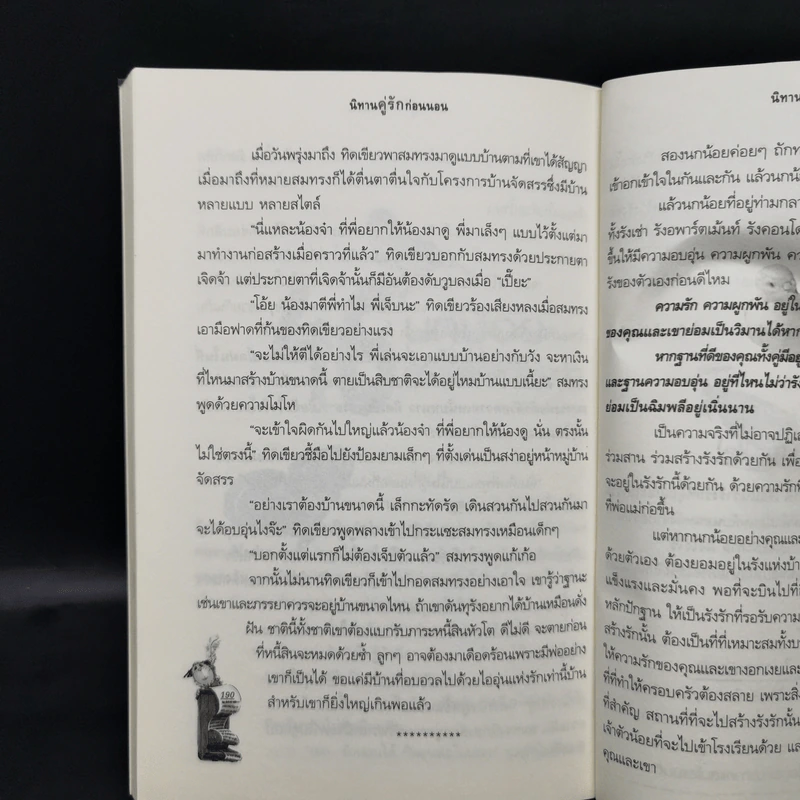 นิทานคู่รักก่อนนอน
เมื่อวันพรุ่งมาถึง ทิดเขียวพาสมทรงมาดูแบบบ้านตามที่เขาได้สัญญา
เมื่อมาถึงที่หมายสมทรงก็ได้ตื่นตาตื่นใจกับโครงการบ้านจัดสรรซึ่งมีบ้าน
หลายแบบ หลายสไตล์
"นี่แหละน้องจ๋า ที่พี่อยากให้น้องมาดู พี่มาเล็งๆ แบบไว้ตั้งแต่มา
มาทำงานก่อสร้างเมื่อคราวที่แล้ว" ทิดเขียวบอกกับสมทรงด้วยประกายตา
เจิดจ้า แต่ประกายตาที่เจิดจ้านั้นก็มีอันต้องดับวูบลงเมื่อ "เปี๊ยะ"
"โอ้ย น้องมาตีพี่ทำไม พี่เจ็บนะ" ทิดเขียวร้องเสียงหลงเมื่อสมทรง
เอามือฟาดที่ก้นของทิดเขียวอย่างแรง
"จะไม่ให้ตีได้อย่างไร พี่เล่นจะเอาแบบบ้านอย่างกับวัง จะหาเงิน
ที่ไหนมาสร้างบ้านขนาดนี้ ตายเป็นสิบชาติจะได้อยู่ไหมบ้านแบบเนี้ยะ" สมทรง
พูดด้วยความโมโห
"จะเข้าใจผิดกันไปใหญ่แล้วน้องจ๋า ที่พี่อยากให้น้องดู นั่น ตรงนั้น
ไม่ใช่ตรงนี้" ทิดเขียวชี้มือไปยังป้อมยามเล็กๆ ที่ตั้งเด่นเป็นสง่าอยู่หน้าหมู่บ้าน
จัดสรร
"อย่างเราต้องบ้านขนาดนี้ เล็กกะทัดรัด เดินสวนกันไปสวนกันมา
จะได้อบอุ่นไงจ๊ะ" ทิดเขียวพูดพลางเข้าไปกระแซะสมทรงเหมือนเด็กๆ
"บอกตั้งแต่แรกก็ไม่ต้องเจ็บตัวแล้ว" สมทรงพูดแก้เก้อ
จากนั้นไม่นานทิดเขียวก็เข้าไปกอดสมทรงอย่างเอาใจ เขารู้ว่าฐานะ
เช่นเขาและภรรยาควรจะอยู่บ้านขนาดไหน ถ้าเขาดันทุรังอยากได้บ้านเหมือนดั่ง
ฝัน ชาตินี้ทั้งชาติเขาต้องแบกรับภาระหนี้สินหัวโต ดีไม่ดี จะตายก่อน
ที่หนี้สินจะหมดด้วยซ้ำ ลูกๆ อาจต้องมาเดือดร้อนเพราะมีพ่ออย่าง
เขาก็เป็นได้ ขอแค่มีบ้านที่อบอวลไปด้วยไออุ่นแห่งรักเท่านี้บ้าน
สำหรับเขาก็ยิ่งใหญ่เกินพอแล้ว
**********
190
นิทาน
สองนกน้อยค่อยๆ ถักท
เข้าอกเข้าใจในกันและกัน แล้วนกน้
แล้วนกน้อยที่อยู่ท่ามกลา
ทั้งรังเช่า รังอพาร์ตเม้นท์ รังคอนโด
ขึ้นให้มีความอบอุ่น ความผูกพัน คว
รังของตัวเองก่อนดีไหม
ความรัก ความผูกพัน อยู่ใน
ของคุณและเขาย่อมเป็นวิมานได้หาก
หากฐานที่ดีของคุณทั้งคู่มีอยู่
และฐานความอบอุ่น อยู่ที่ไหนไม่ว่ารัง
ย่อมเป็นฉิมพลีอยู่เนิ่นนาน
เป็นความจริงที่ไม่อาจปฏิเส
ร่วมสาน ร่วมสร้างรังรักด้วยกัน เพื่อ
จะอยู่ในรังรักนี้ด้วยกัน ด้วยความรัก
ที่พ่อแม่ก่อขึ้น
แต่หากนกน้อยอย่างคุณและ
ด้วยตัวเอง ต้องยอมอยู่ในรังแห่งบ้า
แข็งแรงและมั่นคง พอที่จะบินไปที่
หลักปักฐาน ให้เป็นรังรักที่รอรับความ
สร้างรักนั้น ต้องเป็นที่ที่เหมาะสมทั้งบ
ให้ความรักของคุณและเขางอกเงยและ
ที่ที่ทำให้ครอบครัวต้องสลาย เพราะสิ่ง
ที่สำคัญ สถานที่ที่จะไปสร้างรังรักนั้น
เจ้าตัวน้อยที่จะไปเข้าโรงเรียนด้วย แล
คุณและเขา